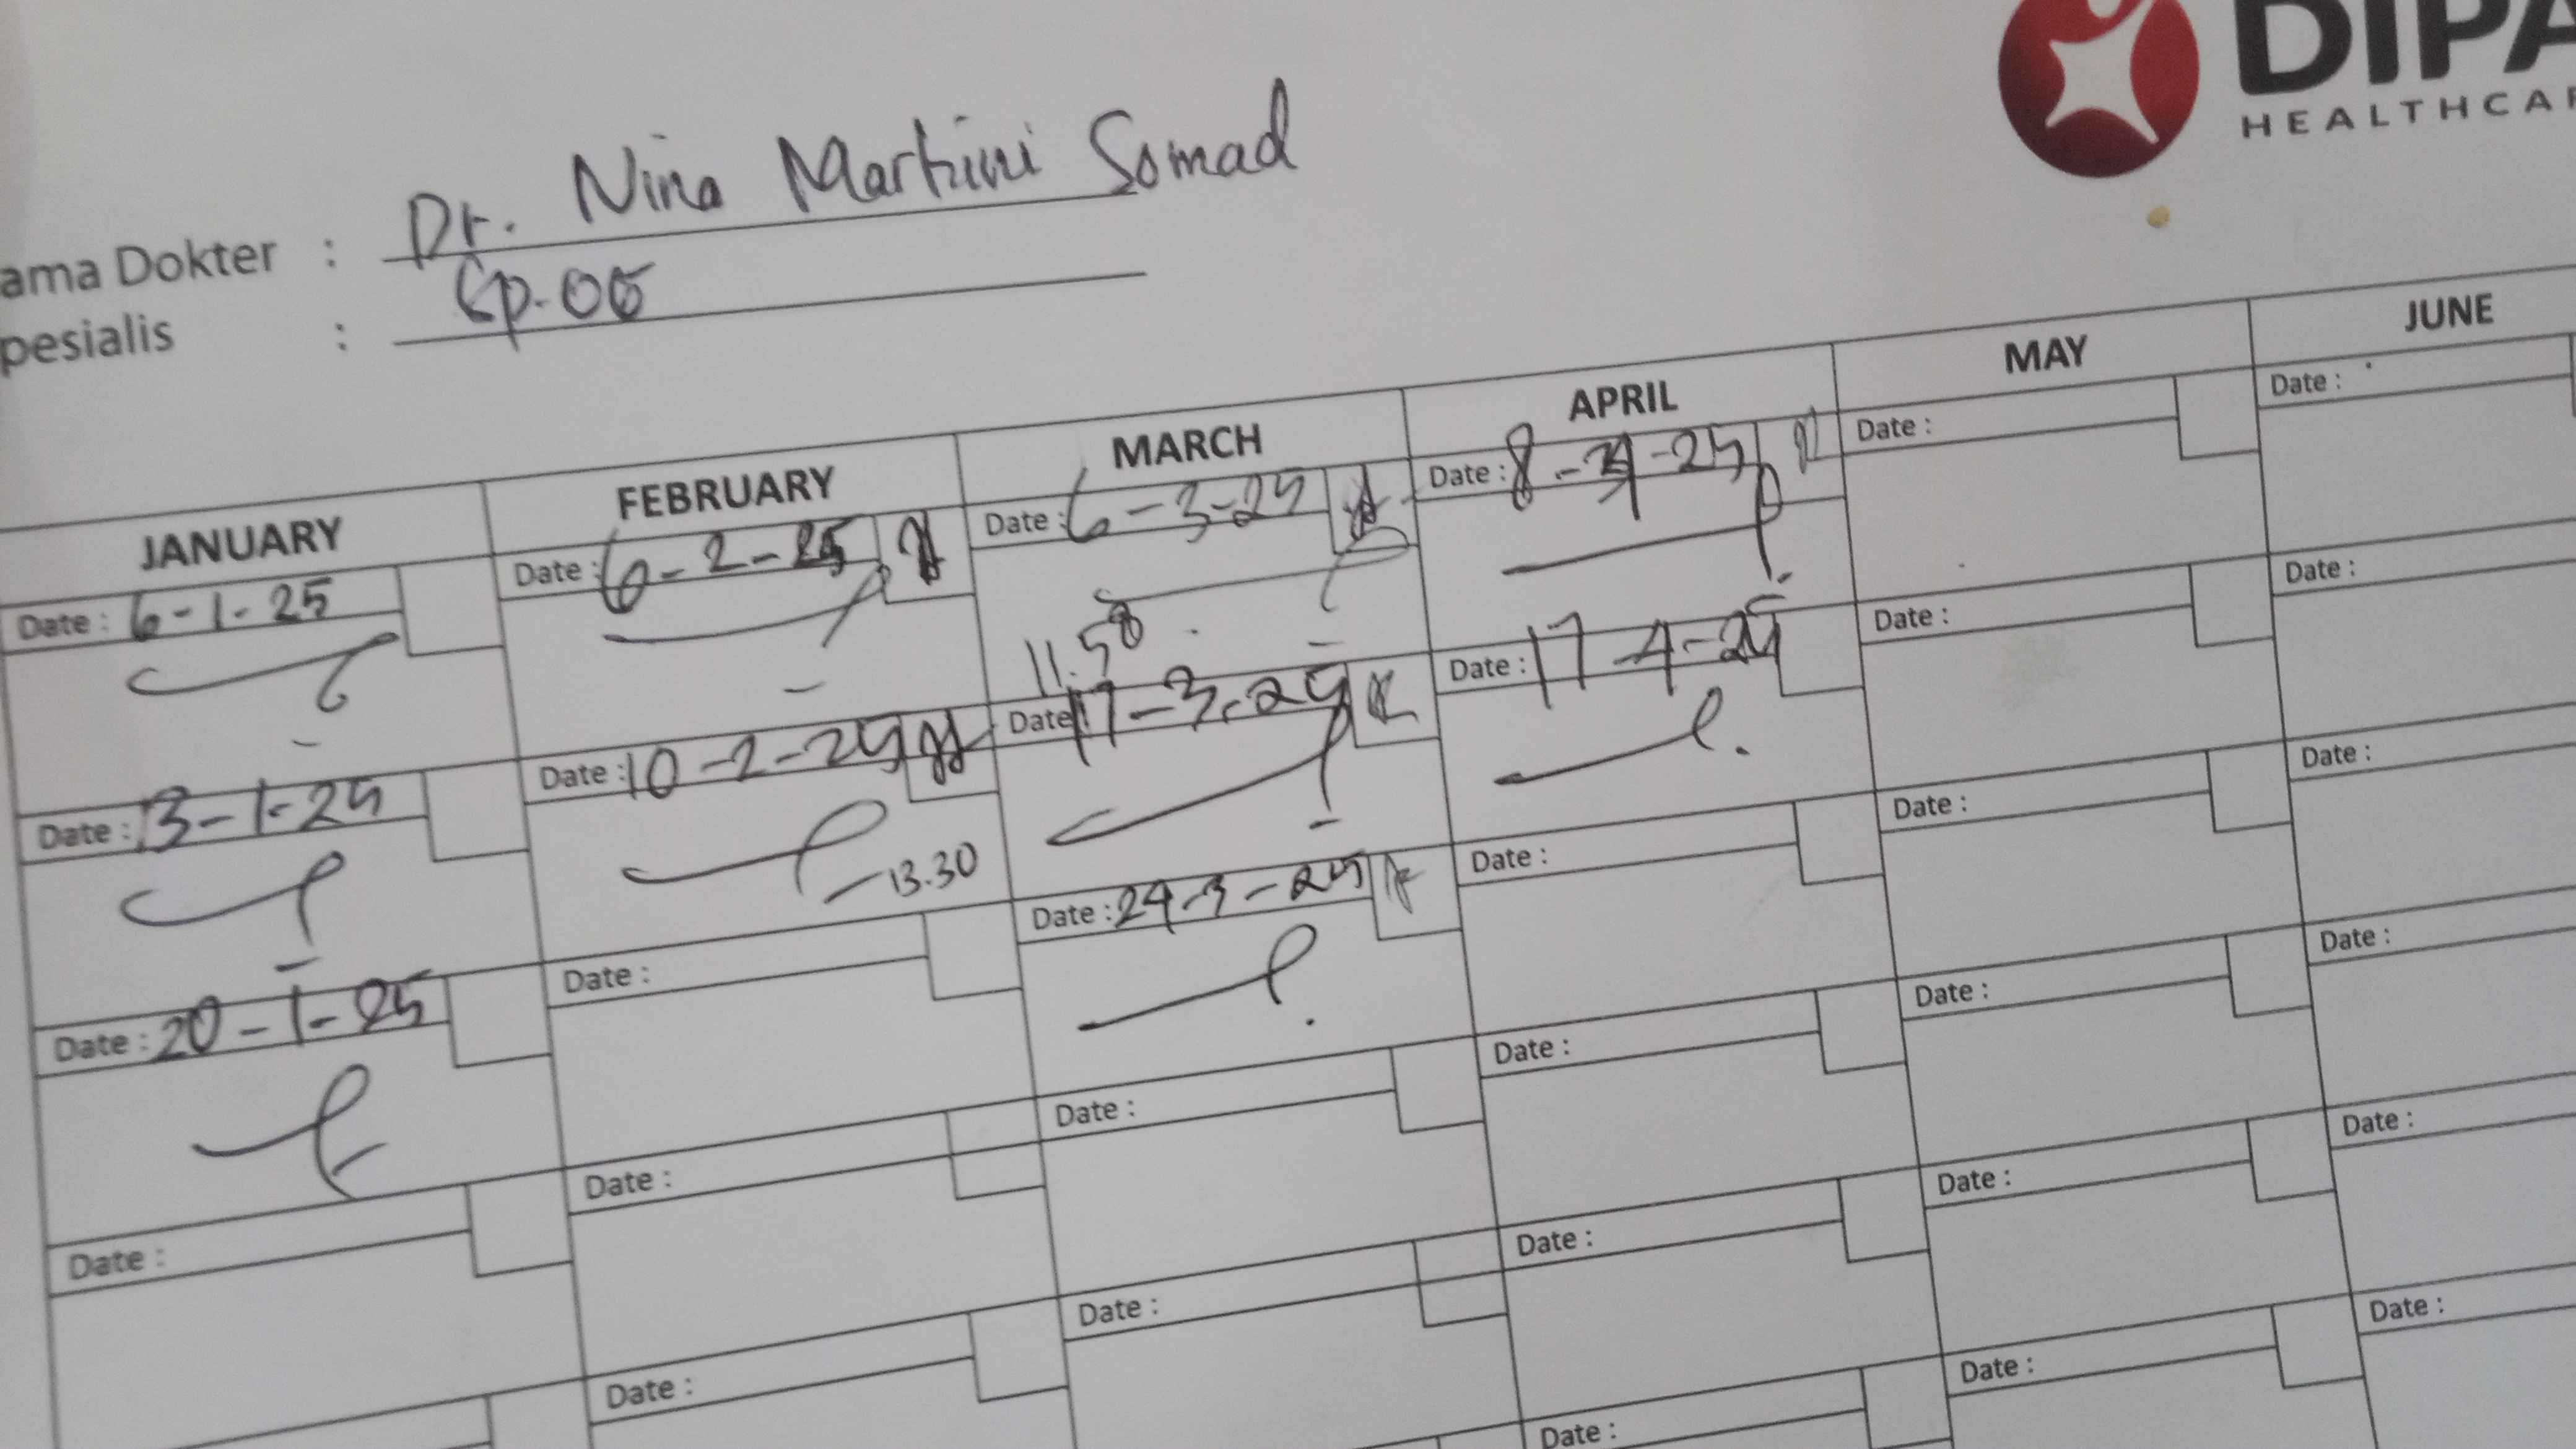 DIPA
HEALTHCAR
ama Dokter : Dr. Nina Martini Somad
pesialis : Sp.OG
JANUARY FEBRUARY MARCH APRIL MAY JUNE
Date : 6-1-25 Date : 6-2-25 Date : 6-3-25 Date : 8-4-25 Date : Date :
11.58
Date : 13-1-25 Date : 10-2-25 Date : 17-3-25 Date : 17-4-25 Date : Date :
13.30
Date : 20-1-25 Date : Date : 24-3-25 Date : Date : Date :
Date : Date : Date : Date : Date : Date :
Date : Date : Date : Date : Date :
Date : Date : Date :